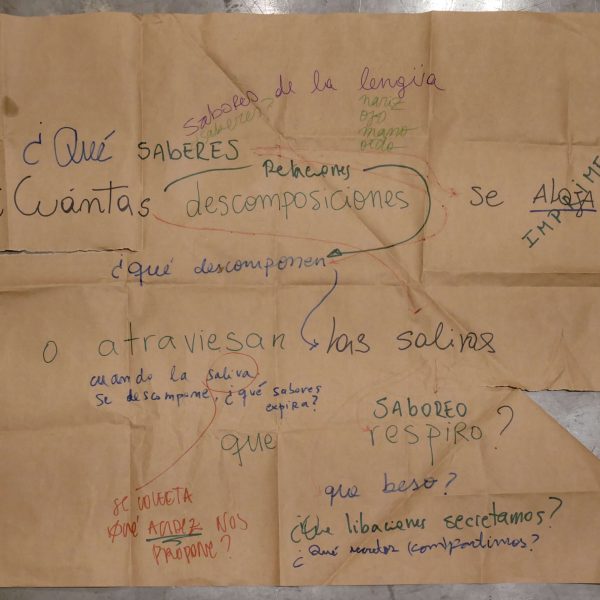 saboreo de la lengüa
saberes?
nariz
ojo
mano
oido
¿Qué SABERES
Relaciones
Cuántas descomposiciones se ALOJA
IMPRIME
¿qué descomponen
o atraviesan las salivas
cuando la saliva
se descompone, ¿qué sabores
expira?
SABOREO
que respiro?
SE COLECTA
qué ACIDEZ NOS
PROPONE?
que beso?
¿Que libaciones secretamos?
¿Qué compartimos?